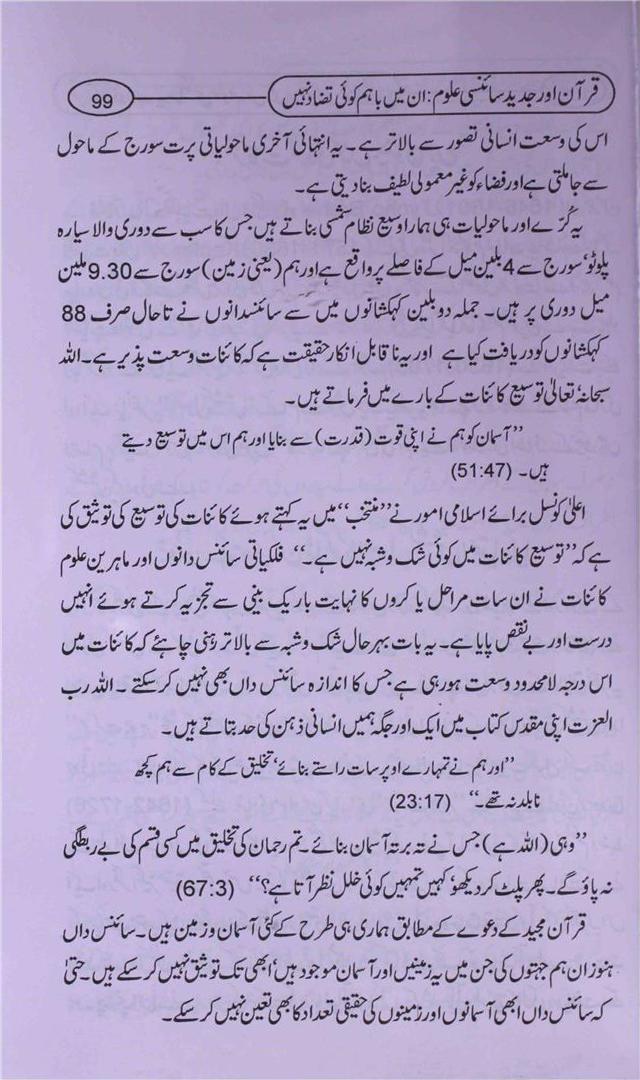 قرآن اور جدید سائنسی علوم: ان میں باہم کوئی تضاد نہیں
99
اس کی وسعت انسانی تصور سے بالاتر ہے۔ یہ انتہائی آخری ماحولیاتی پرت سورج کے ماحول
سے جا ملتی ہے اور فضاء کو غیر معمولی لطیف بنا دیتی ہے۔
یہ کرّے اور ماحولیات ہی ہمارا وسیع نظام شمسی بناتے ہیں جس کا سب سے دوری والا سیارہ
پلوٹو، سورج سے 4 بلین میل کے فاصلے پر واقع ہے اور ہم (یعنی زمین) سورج سے 9.30 ملین
میل دوری پر ہیں۔ جملہ دو بلین کہکشانوں میں سے سائنسدانوں نے تا حال صرف 88
کہکشانوں کو دریافت کیا ہے اور یہ نا قابل انکار حقیقت ہے کہ کائنات وسعت پذیر ہے۔ اللہ
سبحانہٗ تعالیٰ توسیع کائنات کے بارے میں فرماتے ہیں۔
”آسمان کو ہم نے اپنی قوت (قدرت) سے بنایا اور ہم اس میں توسیع دیتے
ہیں۔ (51:47)
اعلیٰ کونسل برائے اسلامی امور نے ”منتخب“ میں یہ کہتے ہوئے کائنات کی توسیع کی توثیق کی
ہے کہ ”توسیع کائنات میں کوئی شک و شبہ نہیں ہے۔“ فلکیاتی سائنس دانوں اور ماہرین علوم
کائنات نے ان سات مراحل یا کروں کا نہایت باریک بینی سے تجزیہ کرتے ہوئے انہیں
درست اور بے نقص پایا ہے۔ یہ بات بہر حال شک و شبہ سے بالاتر رہنی چاہئے کہ کائنات میں
اس درجہ لامحدود وسعت ہو رہی ہے جس کا اندازہ سائنس داں بھی نہیں کر سکتے۔ اللہ رب
العزت اپنی مقدس کتاب میں ایک اور جگہ ہمیں انسانی ذہن کی حد بتاتے ہیں۔
”اور ہم نے تمہارے اوپر سات راستے بنائے، تخلیق کے کام سے ہم کچھ
نابلد نہ تھے۔“ (23:17)
”وہی (اللہ ہے) جس نے تہ بر تہ آسمان بنائے۔ تم رحمان کی تخلیق میں کسی قسم کی بے ربطگی
نہ پاؤ گے۔ پھر پلٹ کر دیکھو، کہیں تمہیں کوئی خلل نظر آتا ہے؟“ (67:3)
قرآن مجید کے دعوے کے مطابق ہماری ہی طرح کے کئی آسمان و زمین ہیں۔ سائنس داں
ہنوز ان ہم جہتوں کی جن میں یہ زمینیں اور آسمان موجود ہیں، ابھی تک توثیق نہیں کر سکے ہیں۔ حتیٰ
کہ سائنس داں ابھی آسمانوں اور زمینوں کی حقیقی تعداد کا بھی تعین نہیں کر سکے۔